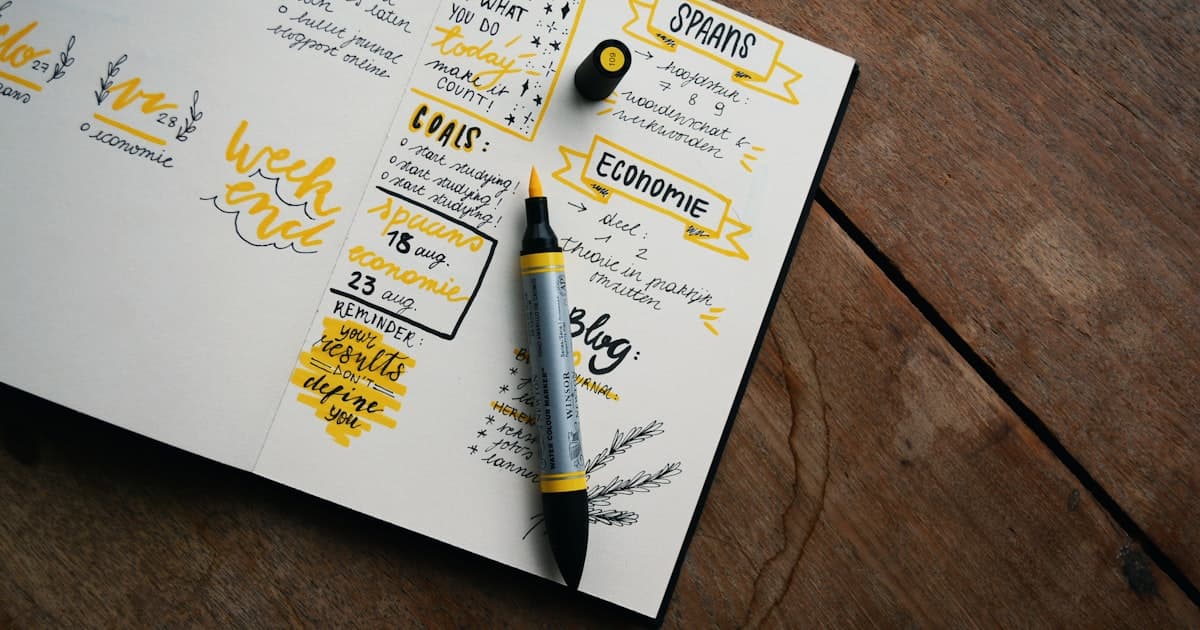 27
vr 28
o economie
o bullet journal
blogpost online
week
end
WHAT
YOU DO
today
make it
COUNT!
GOALS:
o start studying!
o start studying!
o start studying!
spaans
18 aug.
economie
23 aug.
REMINDER:
your
results
DON'T
define
you
SPAANS
→ hoofdstuk:
7 8 9
woordenschat &
werkwoorden
ECONOMIE
→ deel:
1 2
theorie in praktijk
omzetten
Blog:
JOURNAL:
*
*
*
* foto's
* banner
109
WATER COLOUR MARKER
WINSOR